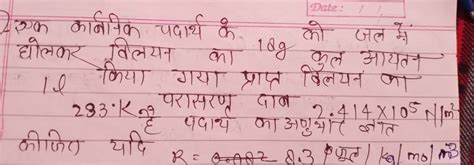 Date :
एक कार्बनिक पदार्थ के 18g को जल में
घोलकर विलयन का कुल आयतन
1l किया गया प्राप्त विलयन का
293·K परासरण दाब 2.414 X 10⁵ N/m²
है पदार्थ का अणुभार ज्ञात
कीजिए यदि R = 8.3 जूल / k / mol m³